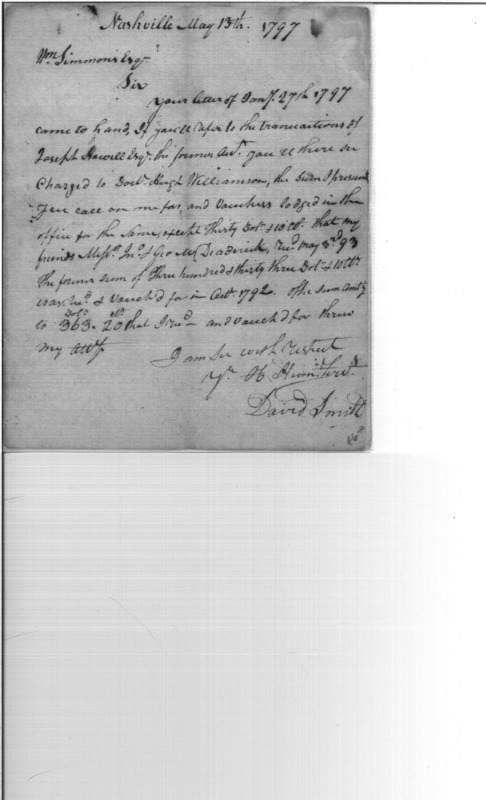 Nashville May 13th. 1797
Wm Simmons Esqr.
Sir
your letter of Jany. 27th 1797
came to hand, If you'll refer to the transactions of
Joseph Howell Esqr. the former Act. you'll there see
Charged to Doctr. Hugh Williamson, the sum I presume
you call on me for, and vouchers lodged in the
office for the same, except Thirty Dolr. & 10 Cts. that my
friends Messrs. Jno. & Geo. M. Deaderick, Recd. May 3d. 93
The former sum of Three hundred & thirty three Dolr. & 10 Cts.
was recd. & vouch'd for in 1792. The sum
to 363. Dolrs 20 Cts that I recd. and vouch'd for threw
my
I am Sir with respect
yr. Ob. Humb. Servt.
David Smith